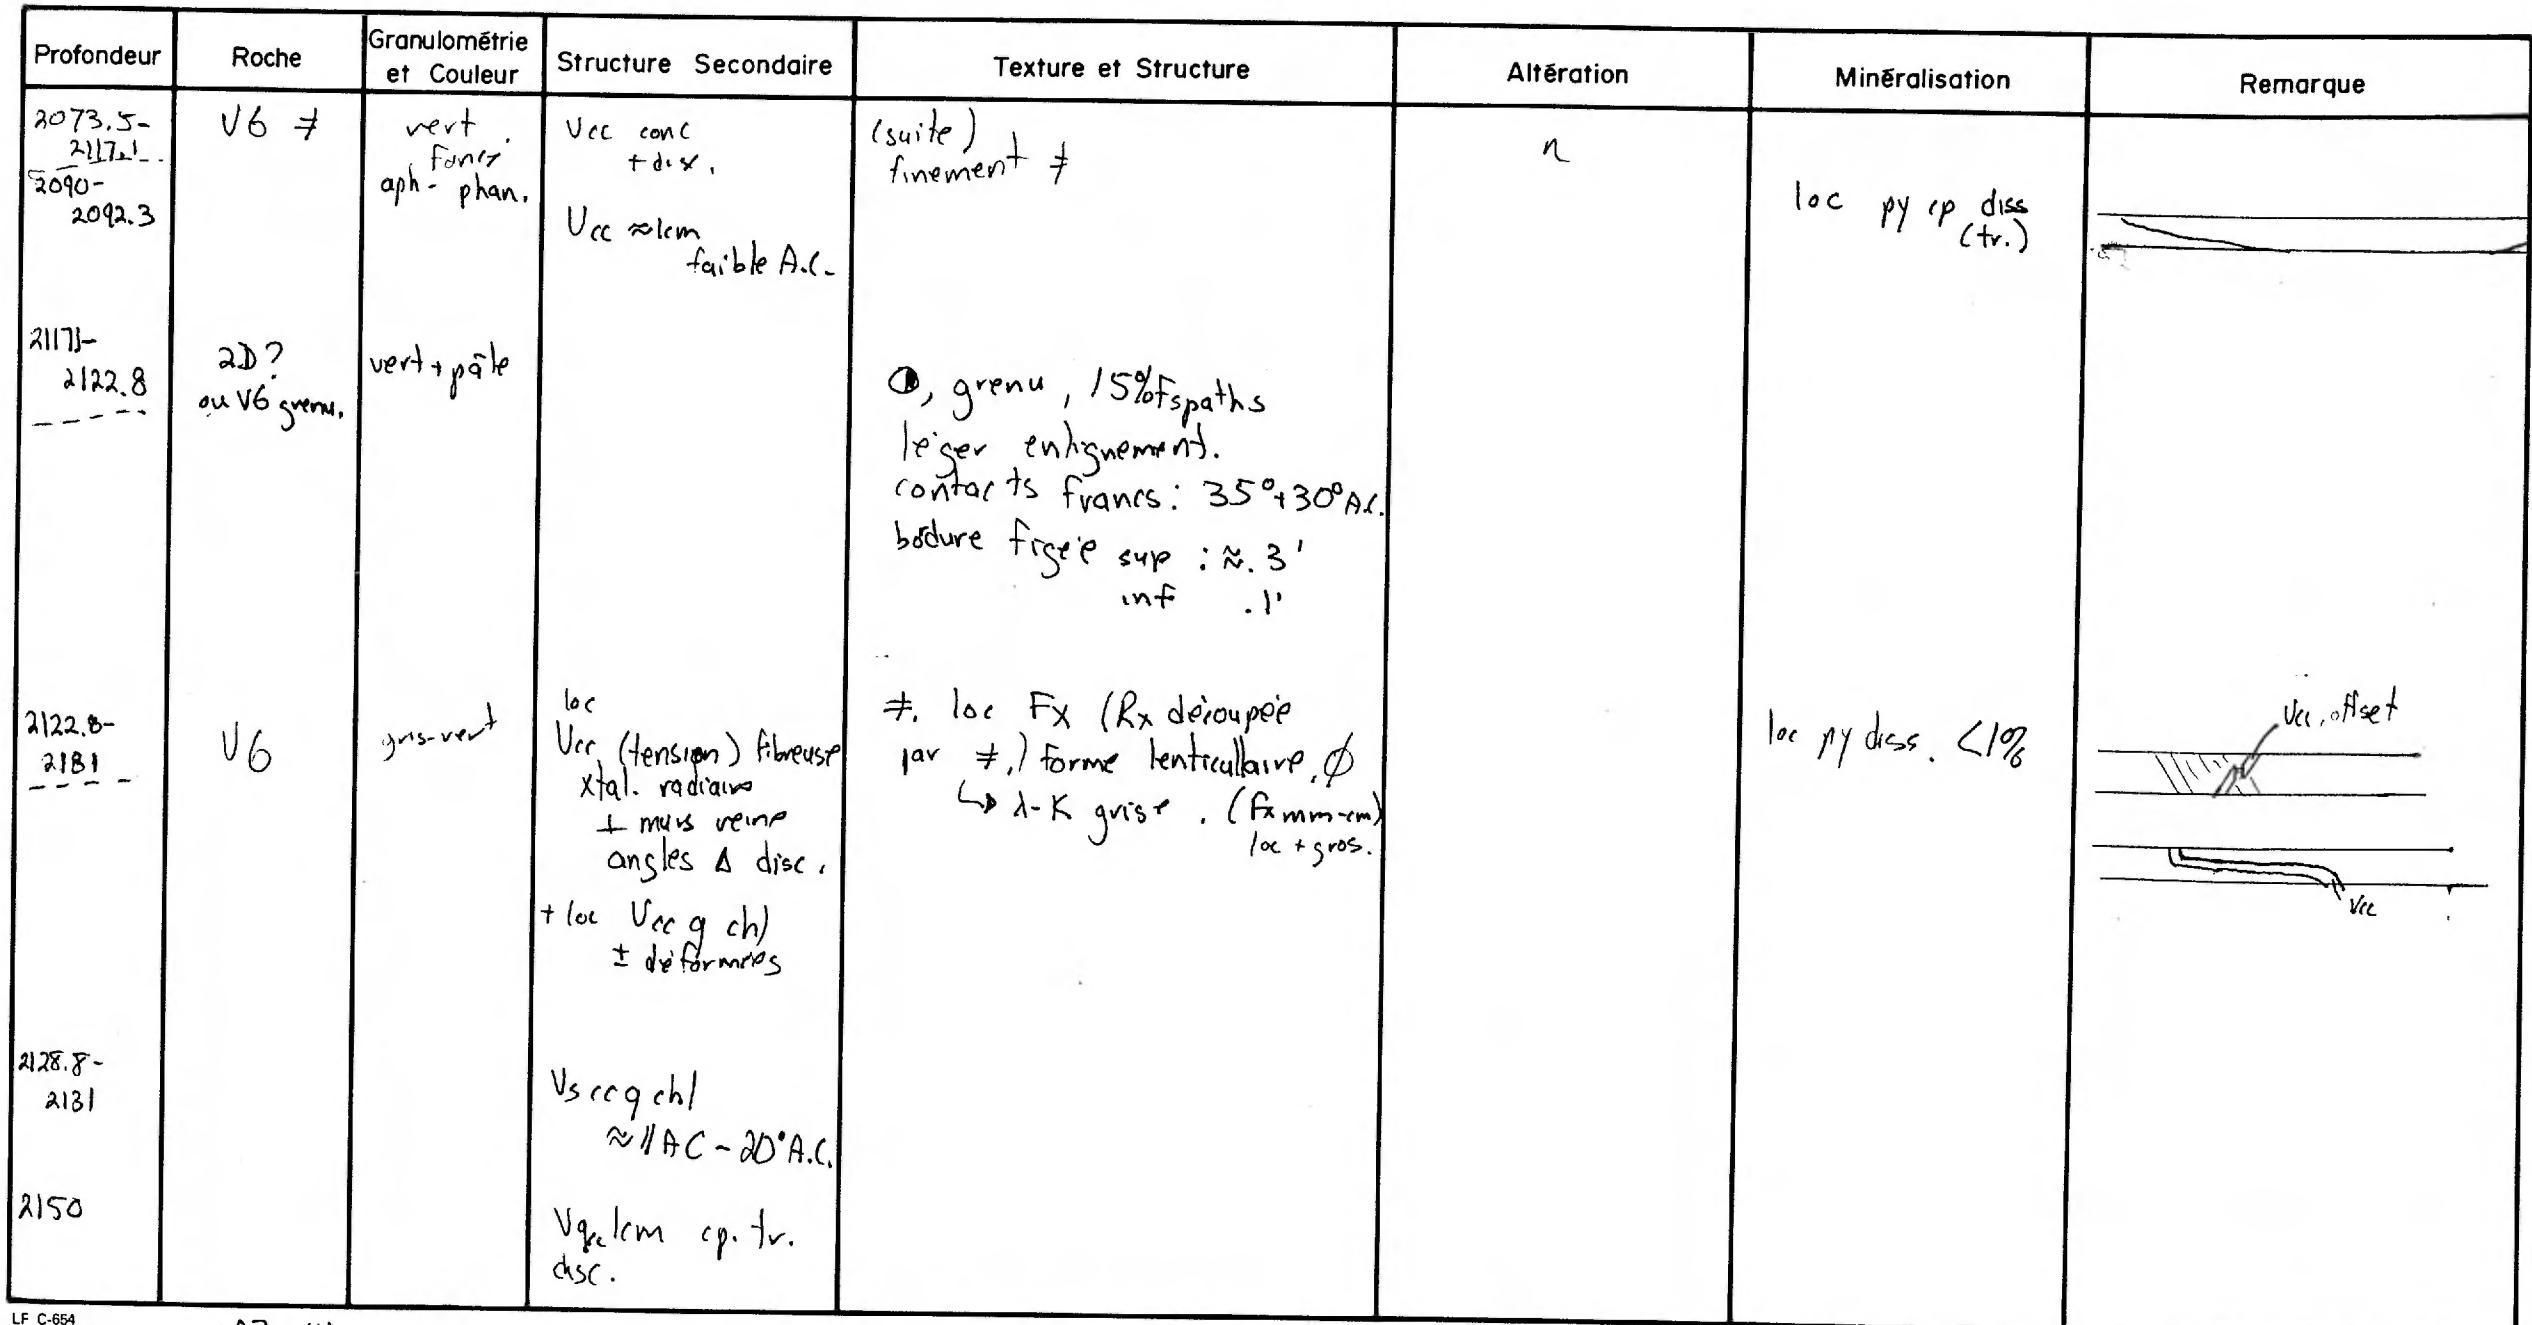 Profondeur
Roche
Granulométrie
et Couleur
Structure Secondaire
Texture et Structure
Altération
Minéralisation
Remarque
2073.5-
2117.1
V6 ≠
vert
foncé
aph - phan.
Vcc conc
+ disc.
(suite)
finement ≠
n
2090-
2092.3
Vcc ≈1cm
faible A.C.
loc py cp diss
(tr.)
2117.1-
2122.8
2D?
ou V6 grenu.
vert + pâle
◑, grenu, 15% fspaths
léger enlignement.
contacts francs: 35° + 30° A.C.
bodure figée sup : ≈ .3'
inf .1'
2122.8-
2181
V6
gris-vert
loc
Vcc (tension) fibreuse
xtal. radiaire
⊥ murs veine
angles Δ disc.
+ loc Vcc q chl
± déformées
≠. loc Fx (Rx découpée
par ≠,) forme lenticullaire, ∅
↳ λ-K grise. (Fx mm-cm)
loc + gros.
loc py diss. <1%
Vcc, offset
Vcc
2128.8-
2131
Vs cc q chl
≈ // AC - 20° A.C.
2150
Vqcc 1cm cp. tr.
disc.
LF C-654